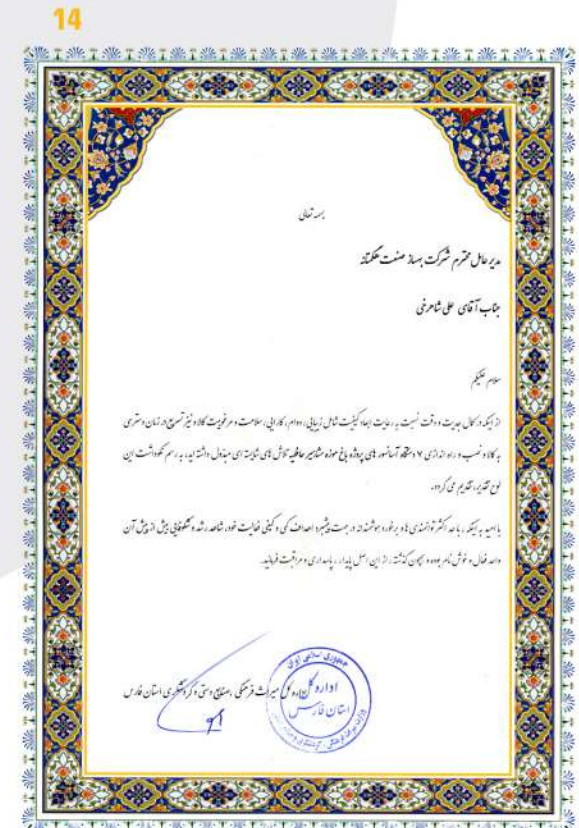 14
بسمه تعالی
مدیر عامل محترم شرکت بهساز صنعت هگمتانه
جناب آقای علی شاهرخی
سلام علیکم
از اینکه در کمال جدیت و دقت نسبت به رعایت ابعاد کیفیت شامل زیبایی، دوام، کارایی، سلامت و مرغوبیت کالا و نیز تسریع در زمان دسترسی
به کالا و نصب و راه اندازی ۷ دستگاه آسانسور های پروژه باغ موزه مشاهیر حافظیه تلاش های شایسته ای مبذول داشته اید، به رسم نکوداشت این
لوح تقدیر، تقدیم می گردد.
با امید به اینکه با حد اکثر توانمندی ها و برخورد هوشمندانه در جهت پیشبرد اهداف کمی و کیفی فعالیت خود، شاهد رشد و شکوفایی بیش از پیش آن
واحد فعال و خوش نام بوده و همچون گذشته از این اصل پایدار، پاسداری و مراقبت فرمایید.
جمهوری اسلامی ایران
اداره کل
استان فارس
اداره کل میراث فرهنگی، صنایع دستی و گردشگری استان فارس